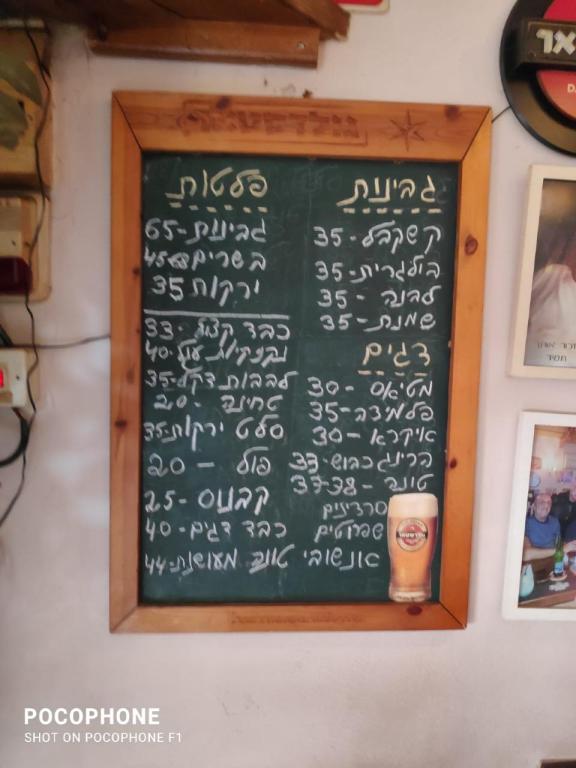 גולדסטאר
גבינות
קשקבל - 35
בולגרית - 35
לבנה - 35
שמנת - 35
דגים
מטיאס - 30
פלמידה - 35
איקרא - 30
הרינג כבוש - 33
טונה - 37-38
סרדינים
שפרוטים
אנשובי טונה מעושנת - 44
פלטות
גבינות - 65
בשרים
ירקות 35
כבד קצוץ - 33
נקניקיות עוף - 40
לבבות דקל - 35
טחינה - 20
סלט ירקות - 35
פול - 20
קבנוס - 25
כבד דגים - 40
POCOPHONE
SHOT ON POCOPHONE F1